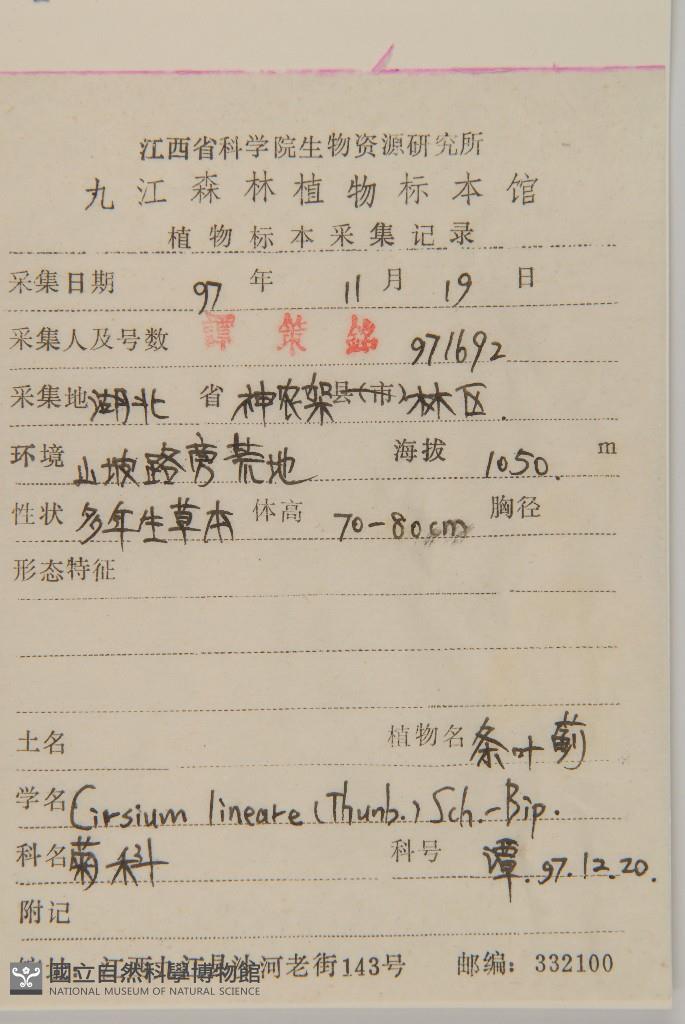 江西省科学院生物资源研究所
九江森林植物标本馆
植物标本采集记录
采集日期 97 年 11 月 19 日
采集人及号数 譚策銘 971692
采集地 湖北 省 神农架县(市)林区.
环境 山坡路旁荒地 海拔 1050. m
性状 多年生草本 体高 70-80cm 胸径
形态特征
土名 植物名 条叶蓟
学名 Cirsium lineare (Thunb.) Sch.-Bip.
科名 菊科 科号 谭.97.12.20.
附记
江西九江县沙河老街143号 邮编：332100
國立自然科學博物館
NATIONAL MUSEUM OF NATURAL SCIENCE